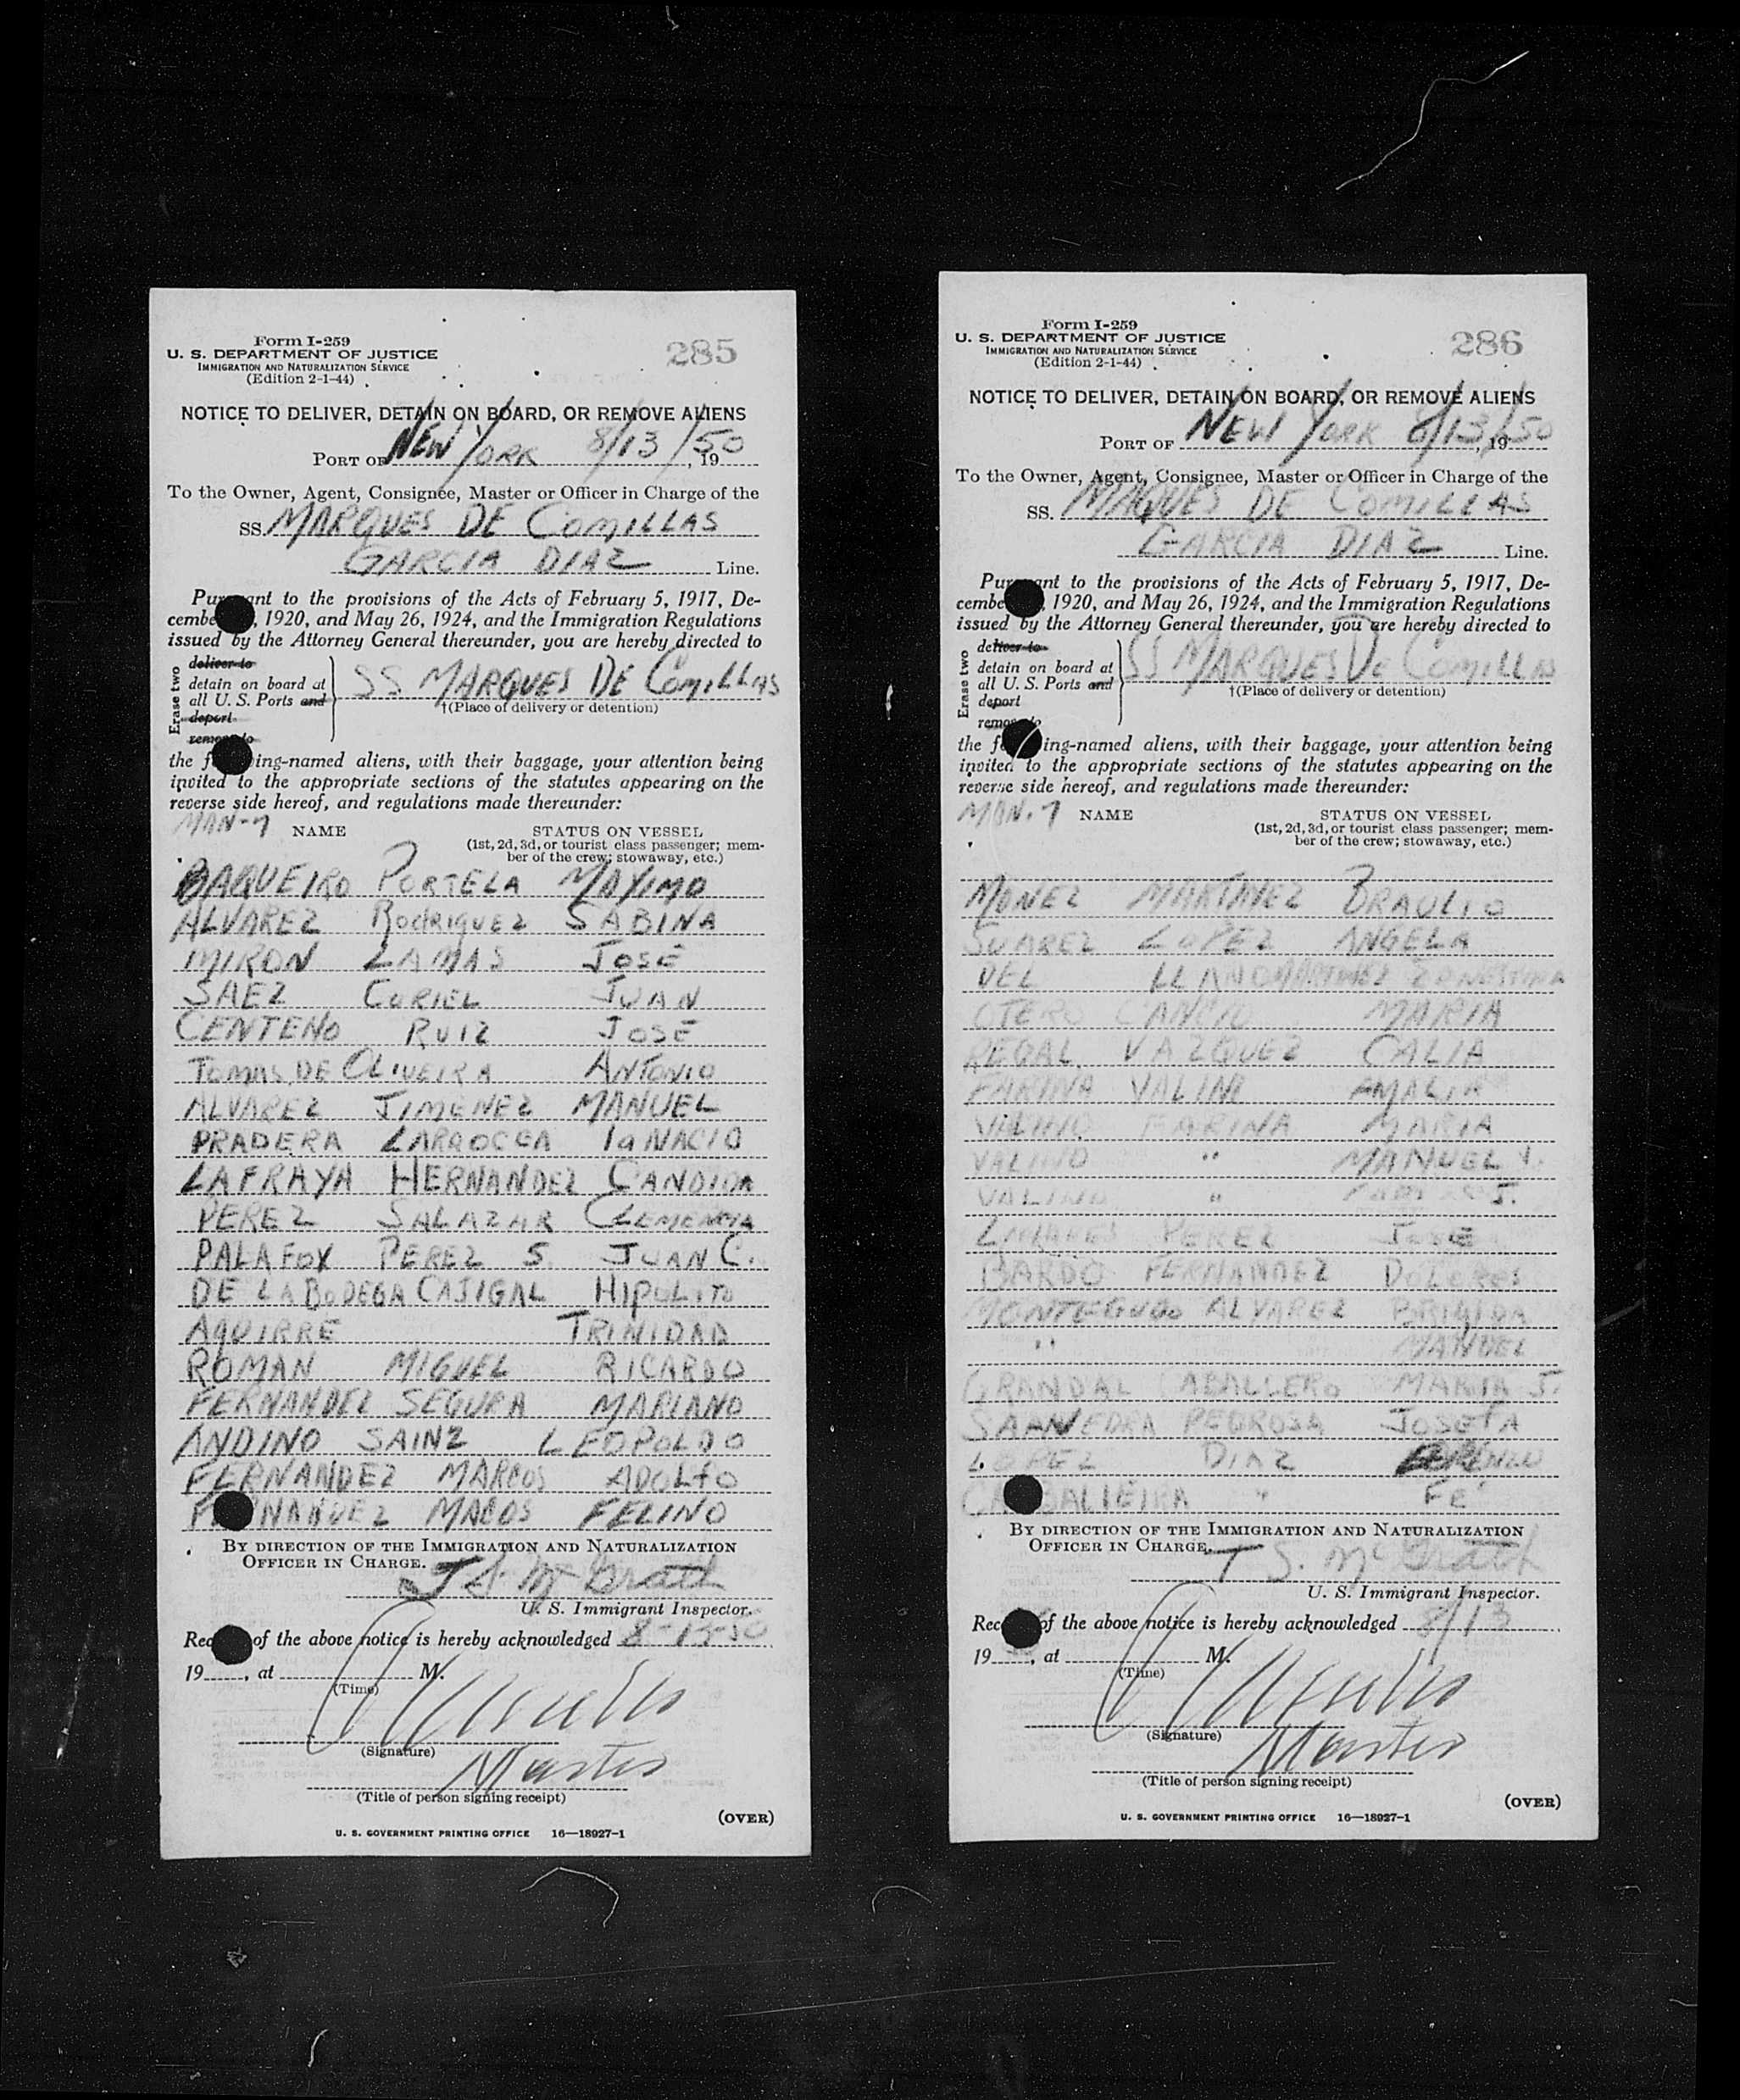 Form I-259
U. S. DEPARTMENT OF JUSTICE
IMMIGRATION AND NATURALIZATION SERVICE
(Edition 2-1-44)
285
NOTICE TO DELIVER, DETAIN ON BOARD, OR REMOVE ALIENS
PORT OF NEW YORK 8/13/50, 19
To the Owner, Agent, Consignee, Master or Officer in Charge of the
SS. MARQUES DE COMILLAS
GARCIA DIAZ Line.
Pursuant to the provisions of the Acts of February 5, 1917, De-
cembe , 1920, and May 26, 1924, and the Immigration Regulations
issued by the Attorney General thereunder, you are hereby directed to
Erase two
deliver to
detain on board at
all U. S. Ports and
deport
remove to
SS MARQUES DE COMILLAS
†(Place of delivery or detention)
the f ing-named aliens, with their baggage, your attention being
invited to the appropriate sections of the statutes appearing on the
reverse side hereof, and regulations made thereunder:
MAN-7 NAME
STATUS ON VESSEL
(1st, 2d, 3d, or tourist class passenger; mem-
ber of the crew; stowaway, etc.)
BAQUEIRO PORTELA MAXIMO
ALVAREZ RODRIGUEZ SABINA
MIRON LAMAS JOSE
SAEZ CURIEL JUAN
CENTENO RUIZ JOSE
TOMAS DE OLIVEIRA ANTONIO
ALVAREZ JIMENEZ MANUEL
PRADERA LARROCEA IGNACIO
LAFRAYA HERNANDEZ CANDIDA
PEREZ SALAZAR CLEMENCIA
PALAFOX PEREZ S. JUAN C.
DE LA BODEGA CAJIGAL HIPOLITO
AGUIRRE TRINIDAD
ROMAN MIGUEL RICARDO
FERNANDEZ SEGURA MARIANO
ANDINO SAINZ LEOPOLDO
FERNANDEZ MARCOS ADOLFO
F NANDEZ MACOS FELINO
BY DIRECTION OF THE IMMIGRATION AND NATURALIZATION
OFFICER IN CHARGE.
T S. McGrath
U. S. Immigrant Inspector.
Rec of the above notice is hereby acknowledged 8-13-50
19 , at M.
(Time)
(Signature)
Master
(Title of person signing receipt)
(OVER)
U. S. GOVERNMENT PRINTING OFFICE 16—18927-1
Form I-259
U. S. DEPARTMENT OF JUSTICE
IMMIGRATION AND NATURALIZATION SERVICE
(Edition 2-1-44)
286
NOTICE TO DELIVER, DETAIN ON BOARD, OR REMOVE ALIENS
PORT OF NEW YORK 8/13/50, 19
To the Owner, Agent, Consignee, Master or Officer in Charge of the
SS. MARQUES DE COMILLAS
GARCIA DIAZ Line.
Pursuant to the provisions of the Acts of February 5, 1917, De-
cembe , 1920, and May 26, 1924, and the Immigration Regulations
issued by the Attorney General thereunder, you are hereby directed to
Erase two
deliver to
detain on board at
all U. S. Ports and
deport
remove to
SS MARQUES DE COMILLAS
†(Place of delivery or detention)
the f ing-named aliens, with their baggage, your attention being
invited to the appropriate sections of the statutes appearing on the
reverse side hereof, and regulations made thereunder:
MAN.7 NAME
STATUS ON VESSEL
(1st, 2d, 3d, or tourist class passenger; mem-
ber of the crew; stowaway, etc.)
MONEZ MARTINEZ BRAULIO
SUAREZ LOPEZ ANGELA
DEL LLANO MARTINEZ
OTERO CANCIO MARIA
REGAL VAZQUEZ CALIA
FARINA VALINO AMALIA
VALINO FARINA MARIA
VALINO " MANUEL V.
VALINO " J.
PEREZ JOSE
BARDO FERNANDEZ DOLORES
MONTEGUDO ALVAREZ BRIGIDA
" MANUEL
GRANDAL CABALLERO MARIA J.
SAAVEDRA PEDROSA JOSEFA
LOPEZ DIAZ
" FE
BY DIRECTION OF THE IMMIGRATION AND NATURALIZATION
OFFICER IN CHARGE.
T S. McGrath
U. S. Immigrant Inspector.
Rec of the above notice is hereby acknowledged 8/13
19 , at M.
(Time)
(Signature)
Master
(Title of person signing receipt)
(OVER)
U. S. GOVERNMENT PRINTING OFFICE 16—18927-1